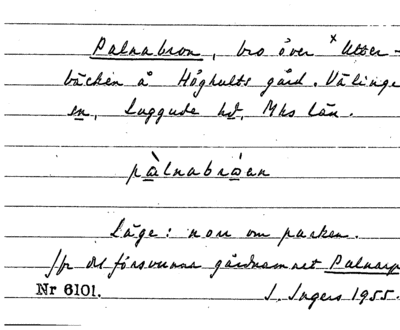 Palnabron, bro över ˣUtter-
bäcken å Höghults gård. Välinge
sn, Luggude hd, Mhs län.
pàlnabráan
Läge: norr om parken.
/fr det försvunna gårdnamnet Palnarp
Nr 6101.
J. Ingers 1955.